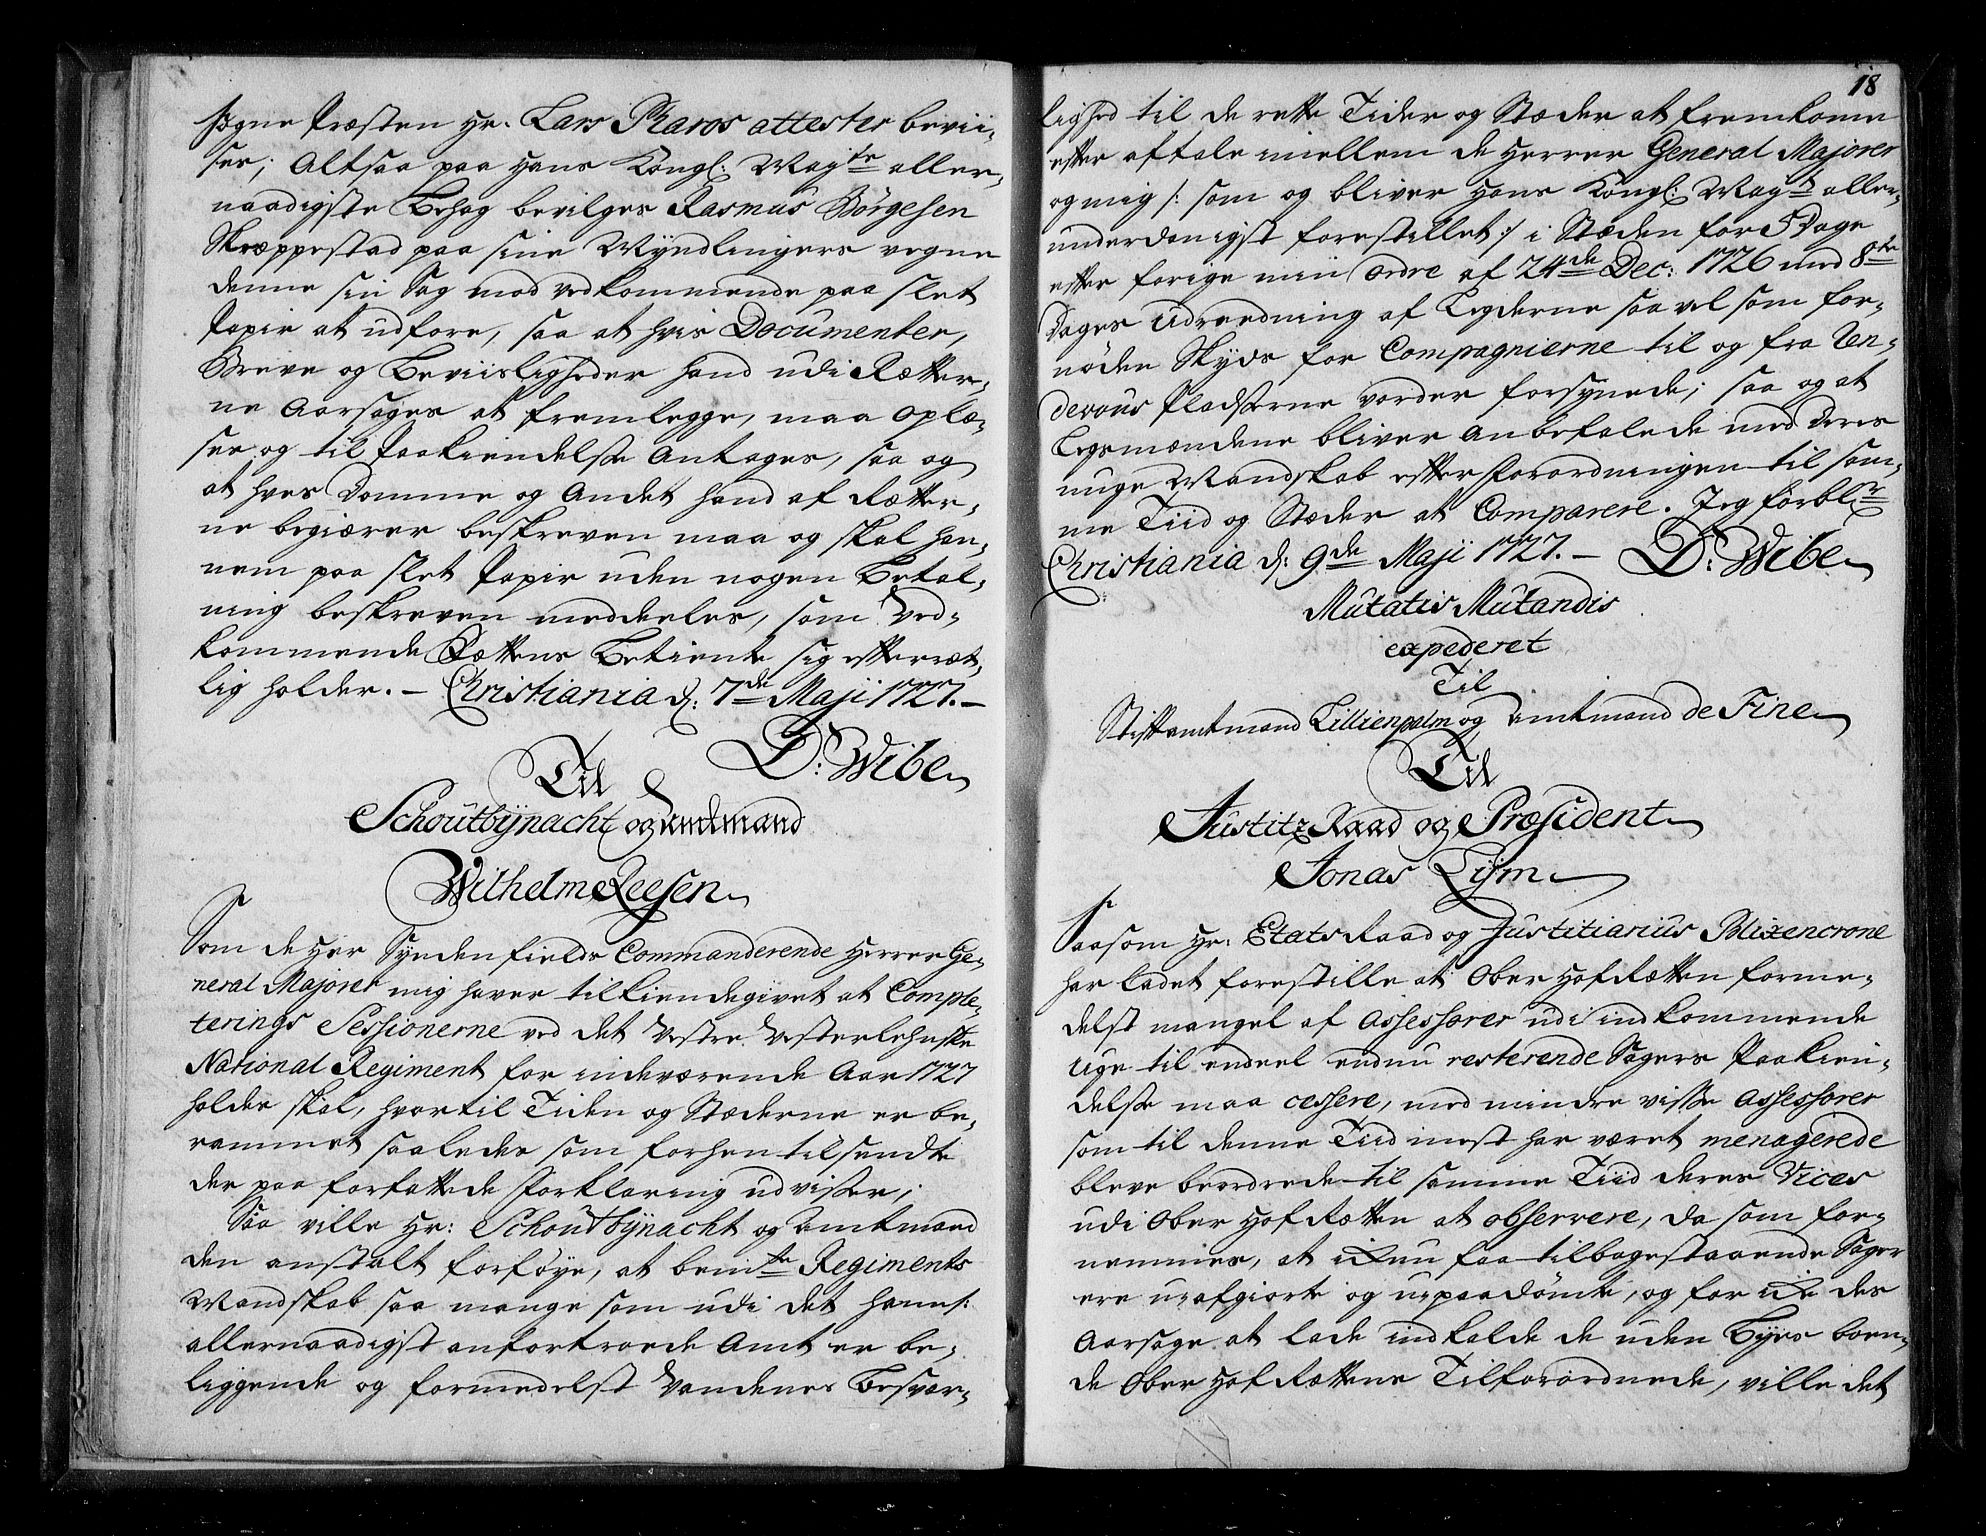 Sogne Præsten Hr. Lars Pharos attester bevii-
ser; Altsaa paa Hans Kongl: May:ts aller-
naadigste Behag bevilges Rasmus Börgesen
Skræppestad paa sine Myndlingers vegne
denne sin Sag mod vedkommende paa slet
Papir at udföre, saa at hvis Documenter,
Breve og Beviisligheder hand udi Rætter-
ne Aarsages at fremlegge, maa oplæ-
ses og til Paakiendelse Antages, saa og
at hves Domme og Andet hand af Rætter-
ne begiærer beskreven maa og skal han-
nem paa slet Papir uden nogen Betal-
ning beskreven meddeeles, som Ved-
kommende Rættens Betiente sig efterræt-
lig holder. – Christiania d: 7de Maji 1727. –
D: Wibe
Til
Schoutbÿnacht og Amtmand
Wilhelm Reesen
Som de Her Synden fields Commanderende Herrer Ge-
neral Majorer mig haver tilkiendegivet at Comple-
terings Sessionerne ved det Vestre Vesterlehnske
National Regiment for indeværende Aar 1727
holdes skal, hvortil Tiden og Stæderne er be-
rammet saaledes som forhen tilsendte
der paa forfattede Forklaring udviser;
Saa ville Hr: Schoutbÿnacht og Amtmand
den anstalt forföye, at bemte Regiments
Mandskab saa mange som udi det hannem
allernaadigst anfortroede Amt er be-
liggende og formedelst Vandenes Besvær-
18
lighed til de rette Tider og Stæder at fremkome
efter aftale imellem de Herrer General Majorer
og mig /: som og bliver Hans Kongl: May:t aller-
underdanigst forestillet :/ i Stæden for 5 Dage
efter forige min Ordre af 24de Dec: 1726 med 8te
Dages Udreedning af Legderne saavel som for-
nöden Skyds for Compagnierne til og fra Ren-
devous Pladserne vorder forsynede; saa og at
Legsmændene bliver Anbefalede med deres
unge Mandskab efter Forordningen til sam-
me Tiid og Stæder at Comparere. Jeg forblr
Christiania d: 9de Maji 1727. – D: Wibe
Mutatis Mutandis
expederet
Til
Stiftamtmand Lillienpalm og Amtmand de Fine
Til
Justitz Raad og Præsident
Jonas Lijm
Saasom Hr: Etats Raad og Justitiarius Blixencrone
har ladet forestille at Ober Hof Rætten forme-
delst mangel af Assessorer udi indkommende
Uge til endeel endnu resterende Sagers Paakien-
delse maa cessere, med mindre visse Assessorer
som til denne Tiid mest har været menagerede
bleve beordrede til samme Tiid deres Vices
udi Ober Hof Rætten at observere, da som for-
nemmes, at ikun faa tilbagestaaende Sager
ere uafgiorte og upaadömte, og for icke des
Aarsage at lade indkalde de uden Byes boen-
de Ober Hof Rættene Tilforordnede, ville det